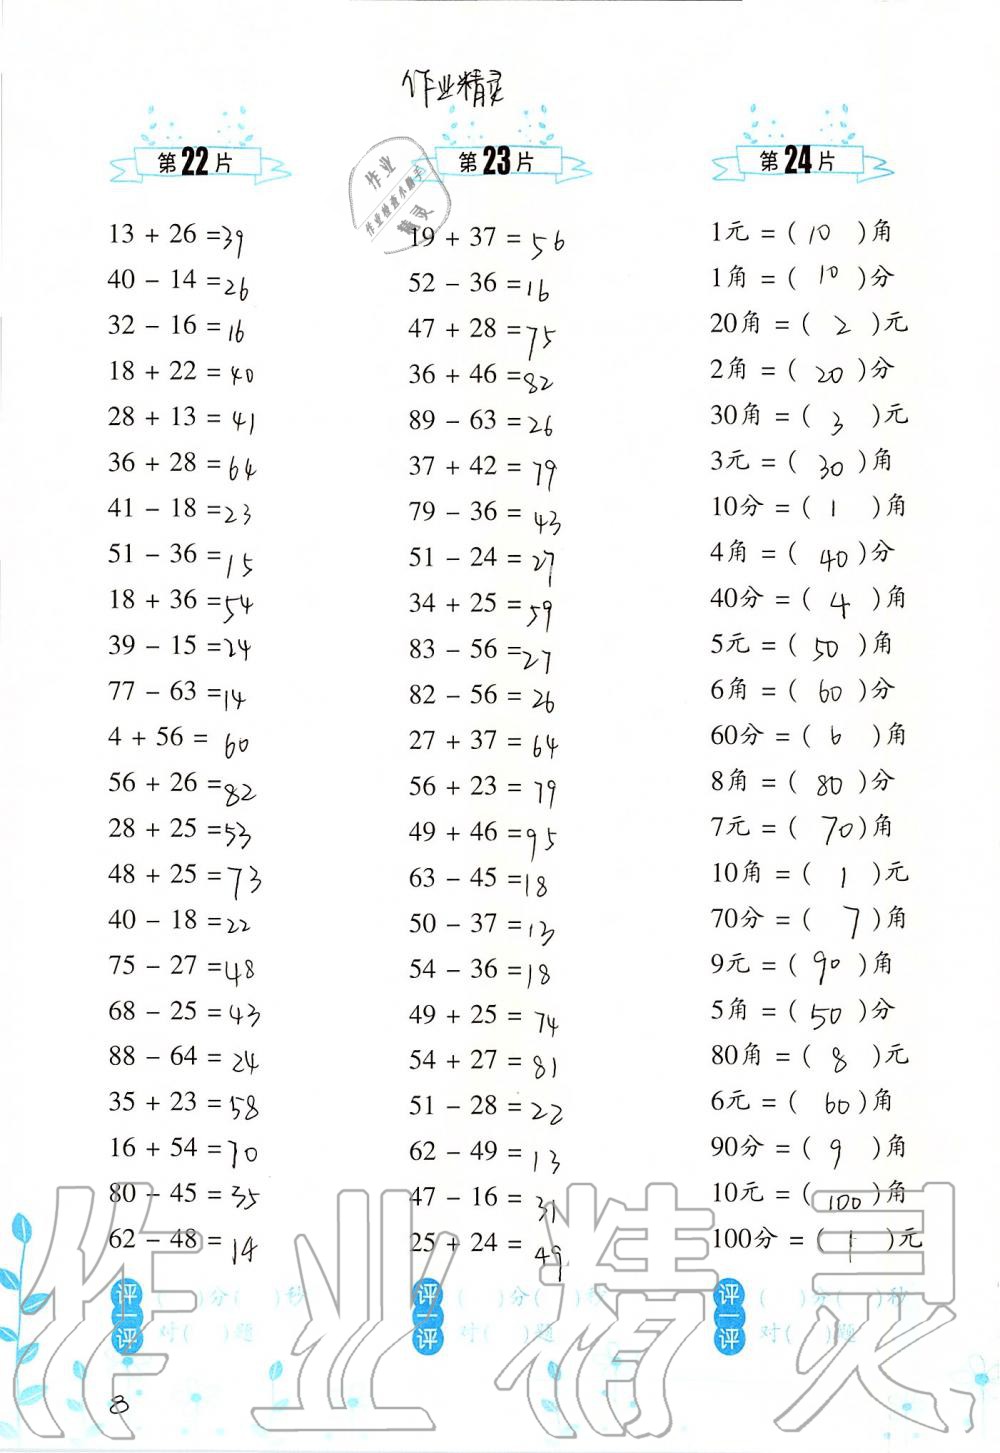 作业精灵
第22片
13 + 26 = 39
40 - 14 = 26
32 - 16 = 16
18 + 22 = 40
28 + 13 = 41
36 + 28 = 64
41 - 18 = 23
51 - 36 = 15
18 + 36 = 54
39 - 15 = 24
77 - 63 = 14
4 + 56 = 60
56 + 26 = 82
28 + 25 = 53
48 + 25 = 73
40 - 18 = 22
75 - 27 = 48
68 - 25 = 43
88 - 64 = 24
35 + 23 = 58
16 + 54 = 70
80 - 45 = 35
62 - 48 = 14
评一评
( )分( )秒
对( )题
第23片
作业
作业检查小助手
精灵
19 + 37 = 56
52 - 36 = 16
47 + 28 = 75
36 + 46 = 82
89 - 63 = 26
37 + 42 = 79
79 - 36 = 43
51 - 24 = 27
34 + 25 = 59
83 - 56 = 27
82 - 56 = 26
27 + 37 = 64
56 + 23 = 79
49 + 46 = 95
63 - 45 = 18
50 - 37 = 13
54 - 36 = 18
49 + 25 = 74
54 + 27 = 81
51 - 28 = 22
62 - 49 = 13
47 - 16 = 31
25 + 24 = 49
评一评
( )分( )秒
对( )题
第24片
1元 = ( 10 )角
1角 = ( 10 )分
20角 = ( 2 )元
2角 = ( 20 )分
30角 = ( 3 )元
3元 = ( 30 )角
10分 = ( 1 )角
4角 = ( 40 )分
40分 = ( 4 )角
5元 = ( 50 )角
6角 = ( 60 )分
60分 = ( 6 )角
8角 = ( 80 )分
7元 = ( 70 )角
10角 = ( 1 )元
70分 = ( 7 )角
9元 = ( 90 )角
5角 = ( 50 )分
80角 = ( 8 )元
6元 = ( 60 )角
90分 = ( 9 )角
10元 = ( 100 )角
100分 = ( 1 )元
评一评
( )分( )秒
对( )题
作业精灵
8